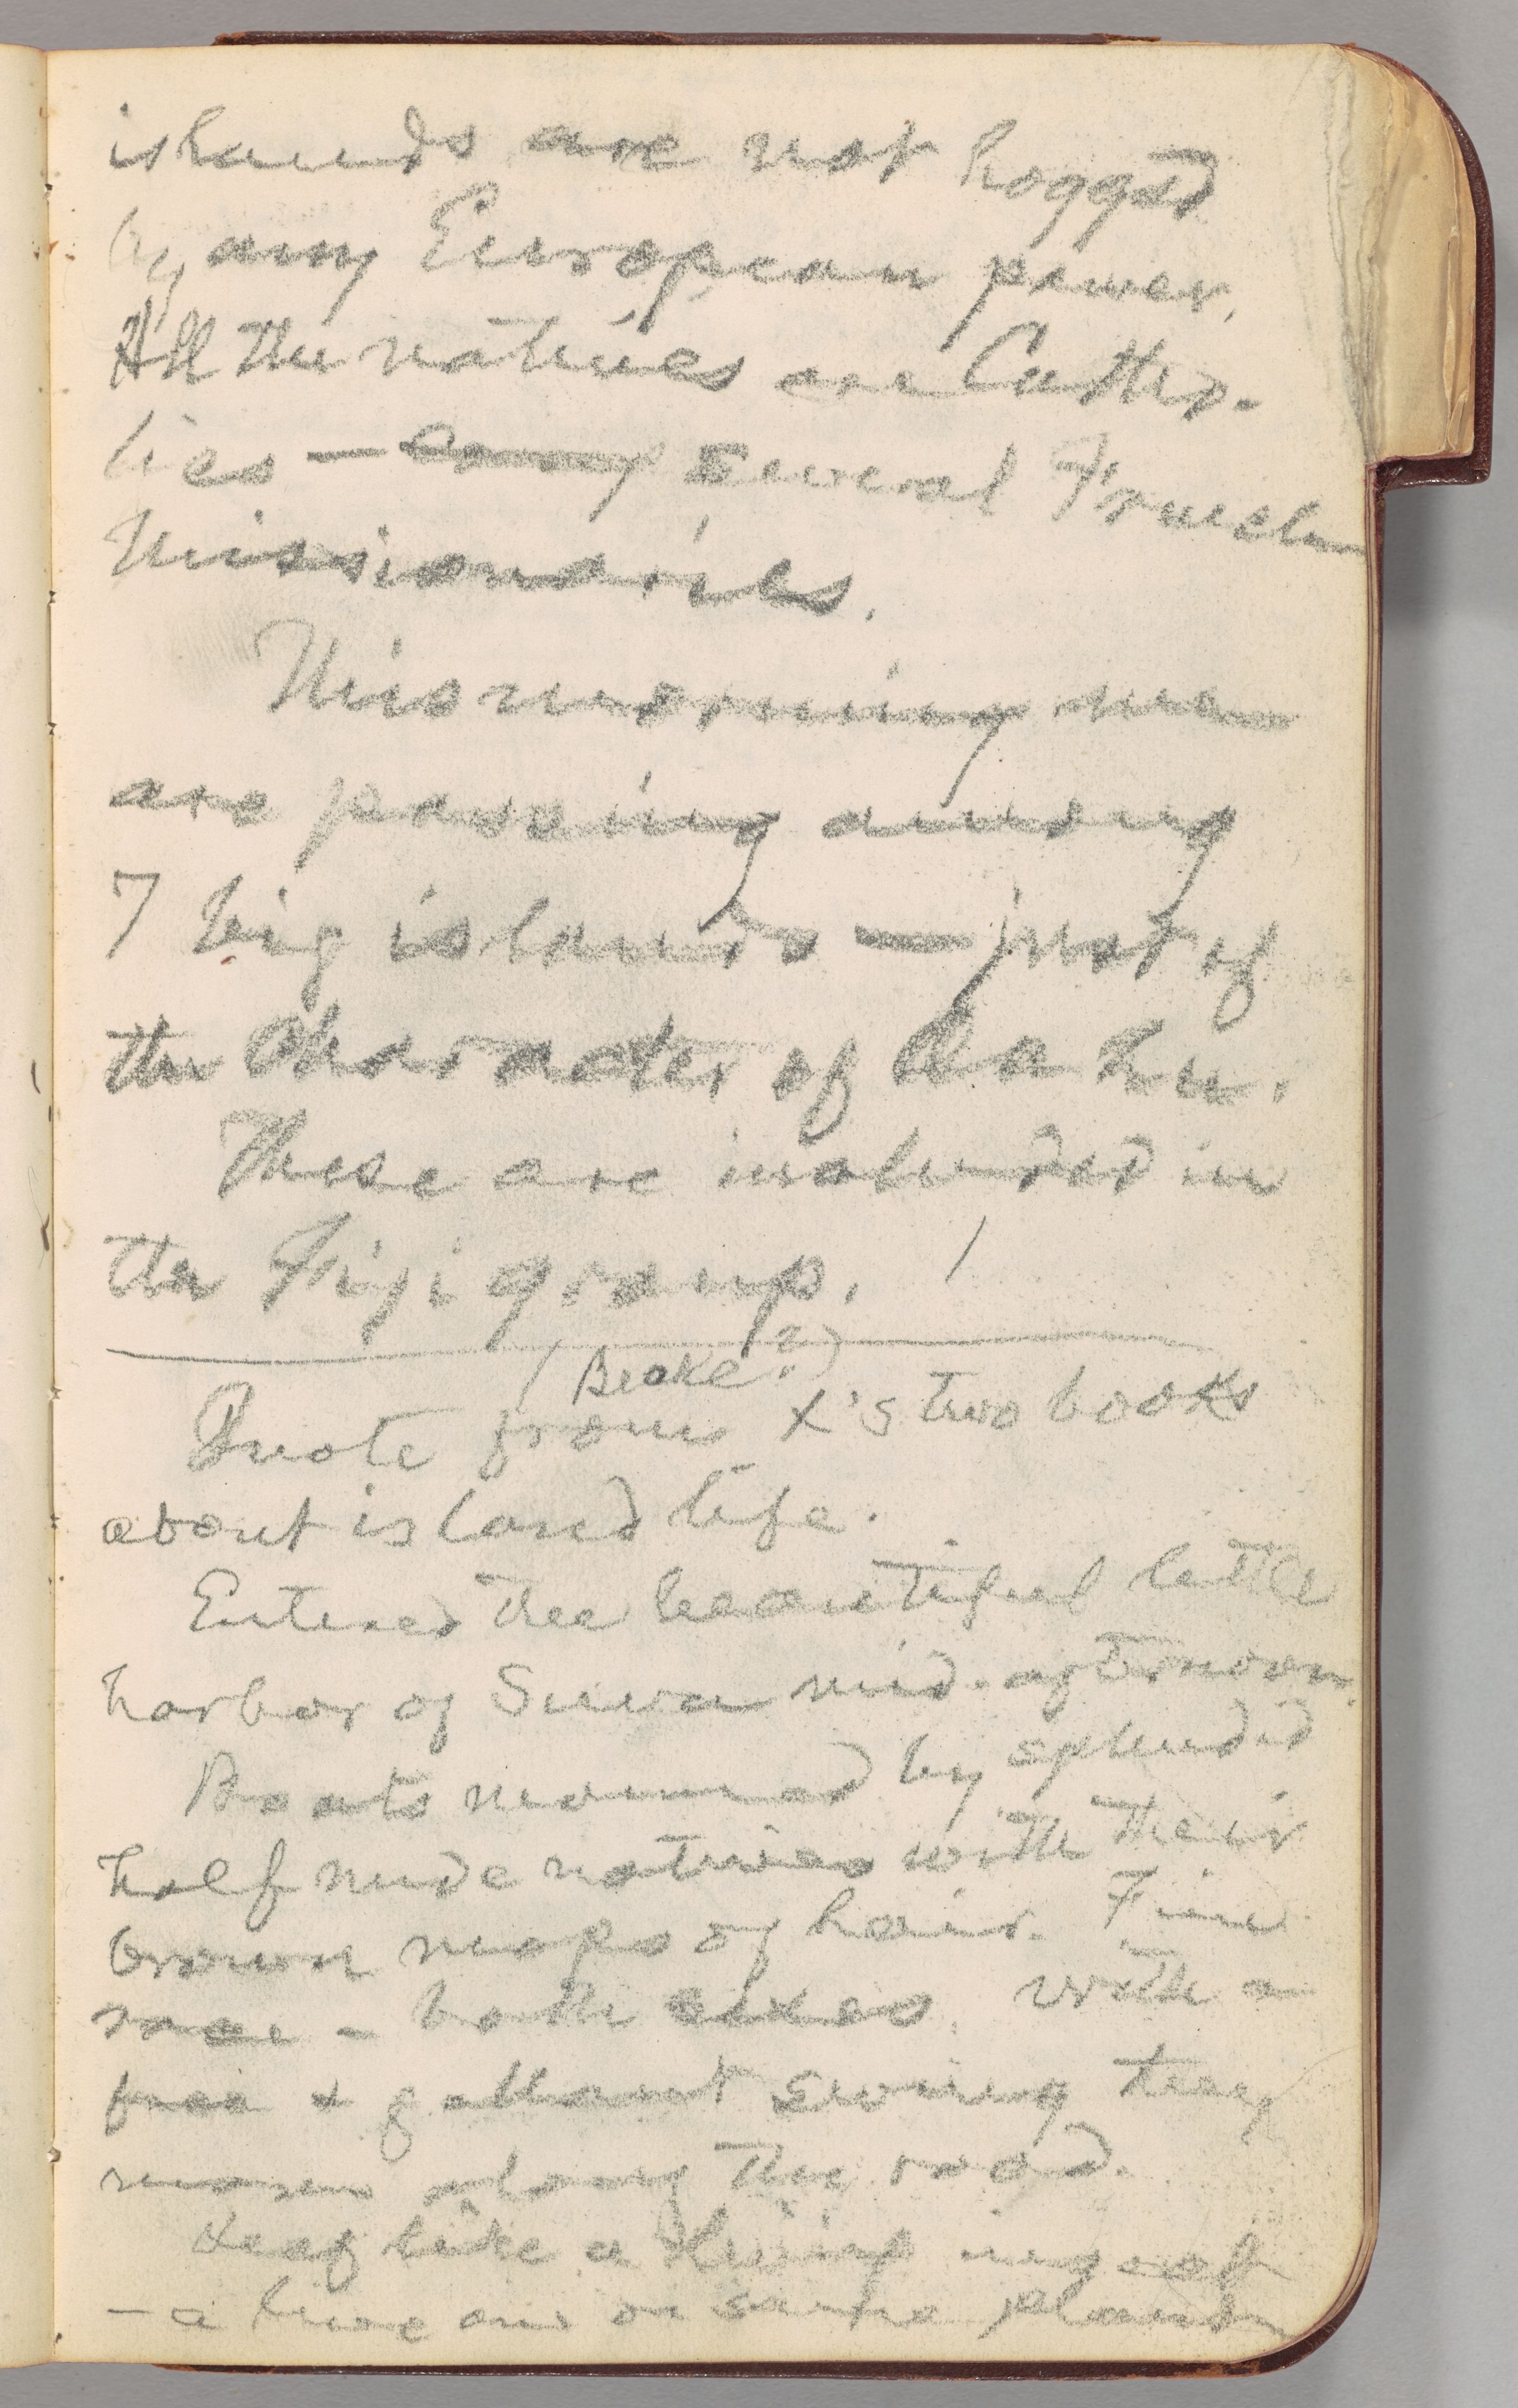 islands are not hogged
by any European power.
All the natives are Catho-
lics — several French
missionaries.
This morning we
are passing among
7 big islands — just of
the character of Oahu.
These are included in
the Fiji group. /
(Beoke?)
Quote from X's two books
about island life.
Entered the beautiful little
harbor of Suva mid-afternoon.
Boats manned by splendid
half nude natives with their
brown mops of hair. Fine
race - both sexes. With a
free & gallant swing they
move along the road.
Leaf like a living insect
— a live one on same plant